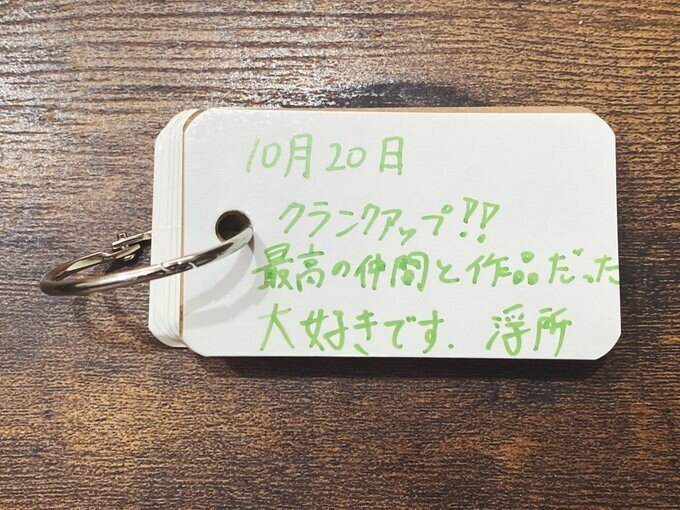 10月20日
クランクアップ!!
最高の仲間と作品だった
大好きです. 浮所